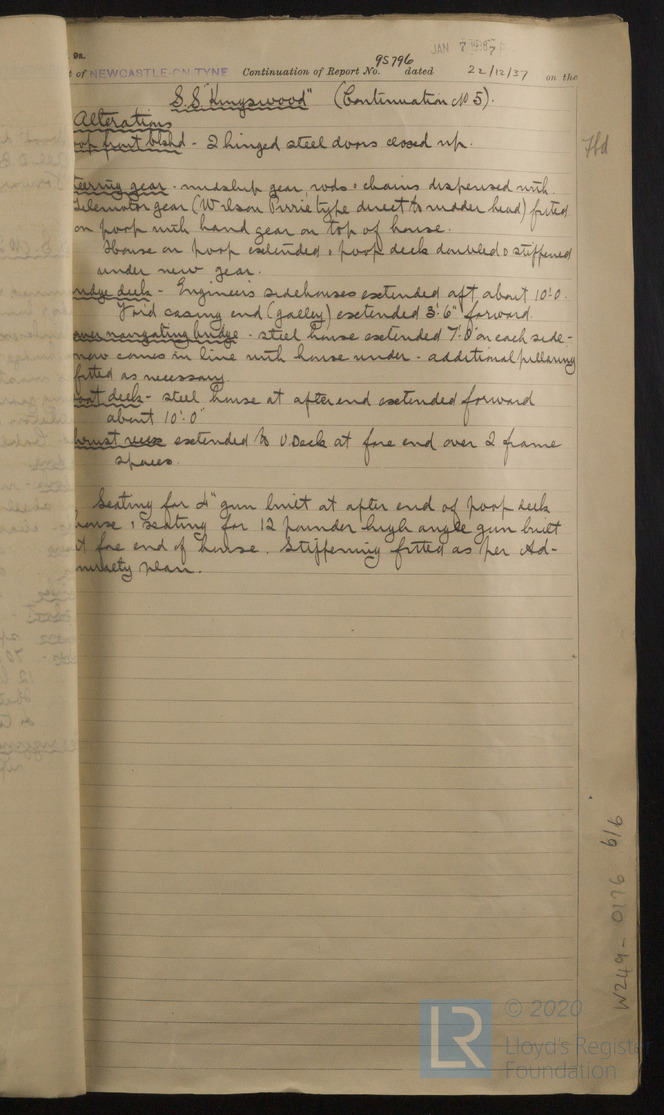 9a.
t of NEWCASTLE-ON-TYNE Continuation of Report No. 95796 dated 22/12/37 on the
JAN 7
S.S. "Kingswood" (Continuation No 5).
Alterations
oop front blkhd - 2 hinged steel doors closed up.
teering gear - midship gear, rods & chains dispensed with
Telemotor gear (Wilson Pirrie type direct to rudder head) fitted
on poop with hand gear on top of house.
House on poop extended, poop deck doubled & stiffened
under new gear.
ridge deck - Engineers sidehouses extended aft about 10'-0.
Fwd casing end (galley) extended 3'-6" forward.
ower navigating bridge - steel house extended 7'-0" on each side -
now comes in line with house under - additional pillaring
fitted as necessary.
oat deck - steel house at after end extended forward
about 10'-0"
hrust recess extended to U.Deck at fore end over 2 frame
spaces.
Seating for 4" gun built at after end of poop deck
house, seating for 12 pounder high angle gun built
at fore end of house. Stiffening fitted as per Ad-
miralty plan.
W249-0176 6/6
LR
© 2020
Lloyd's Register
Foundation